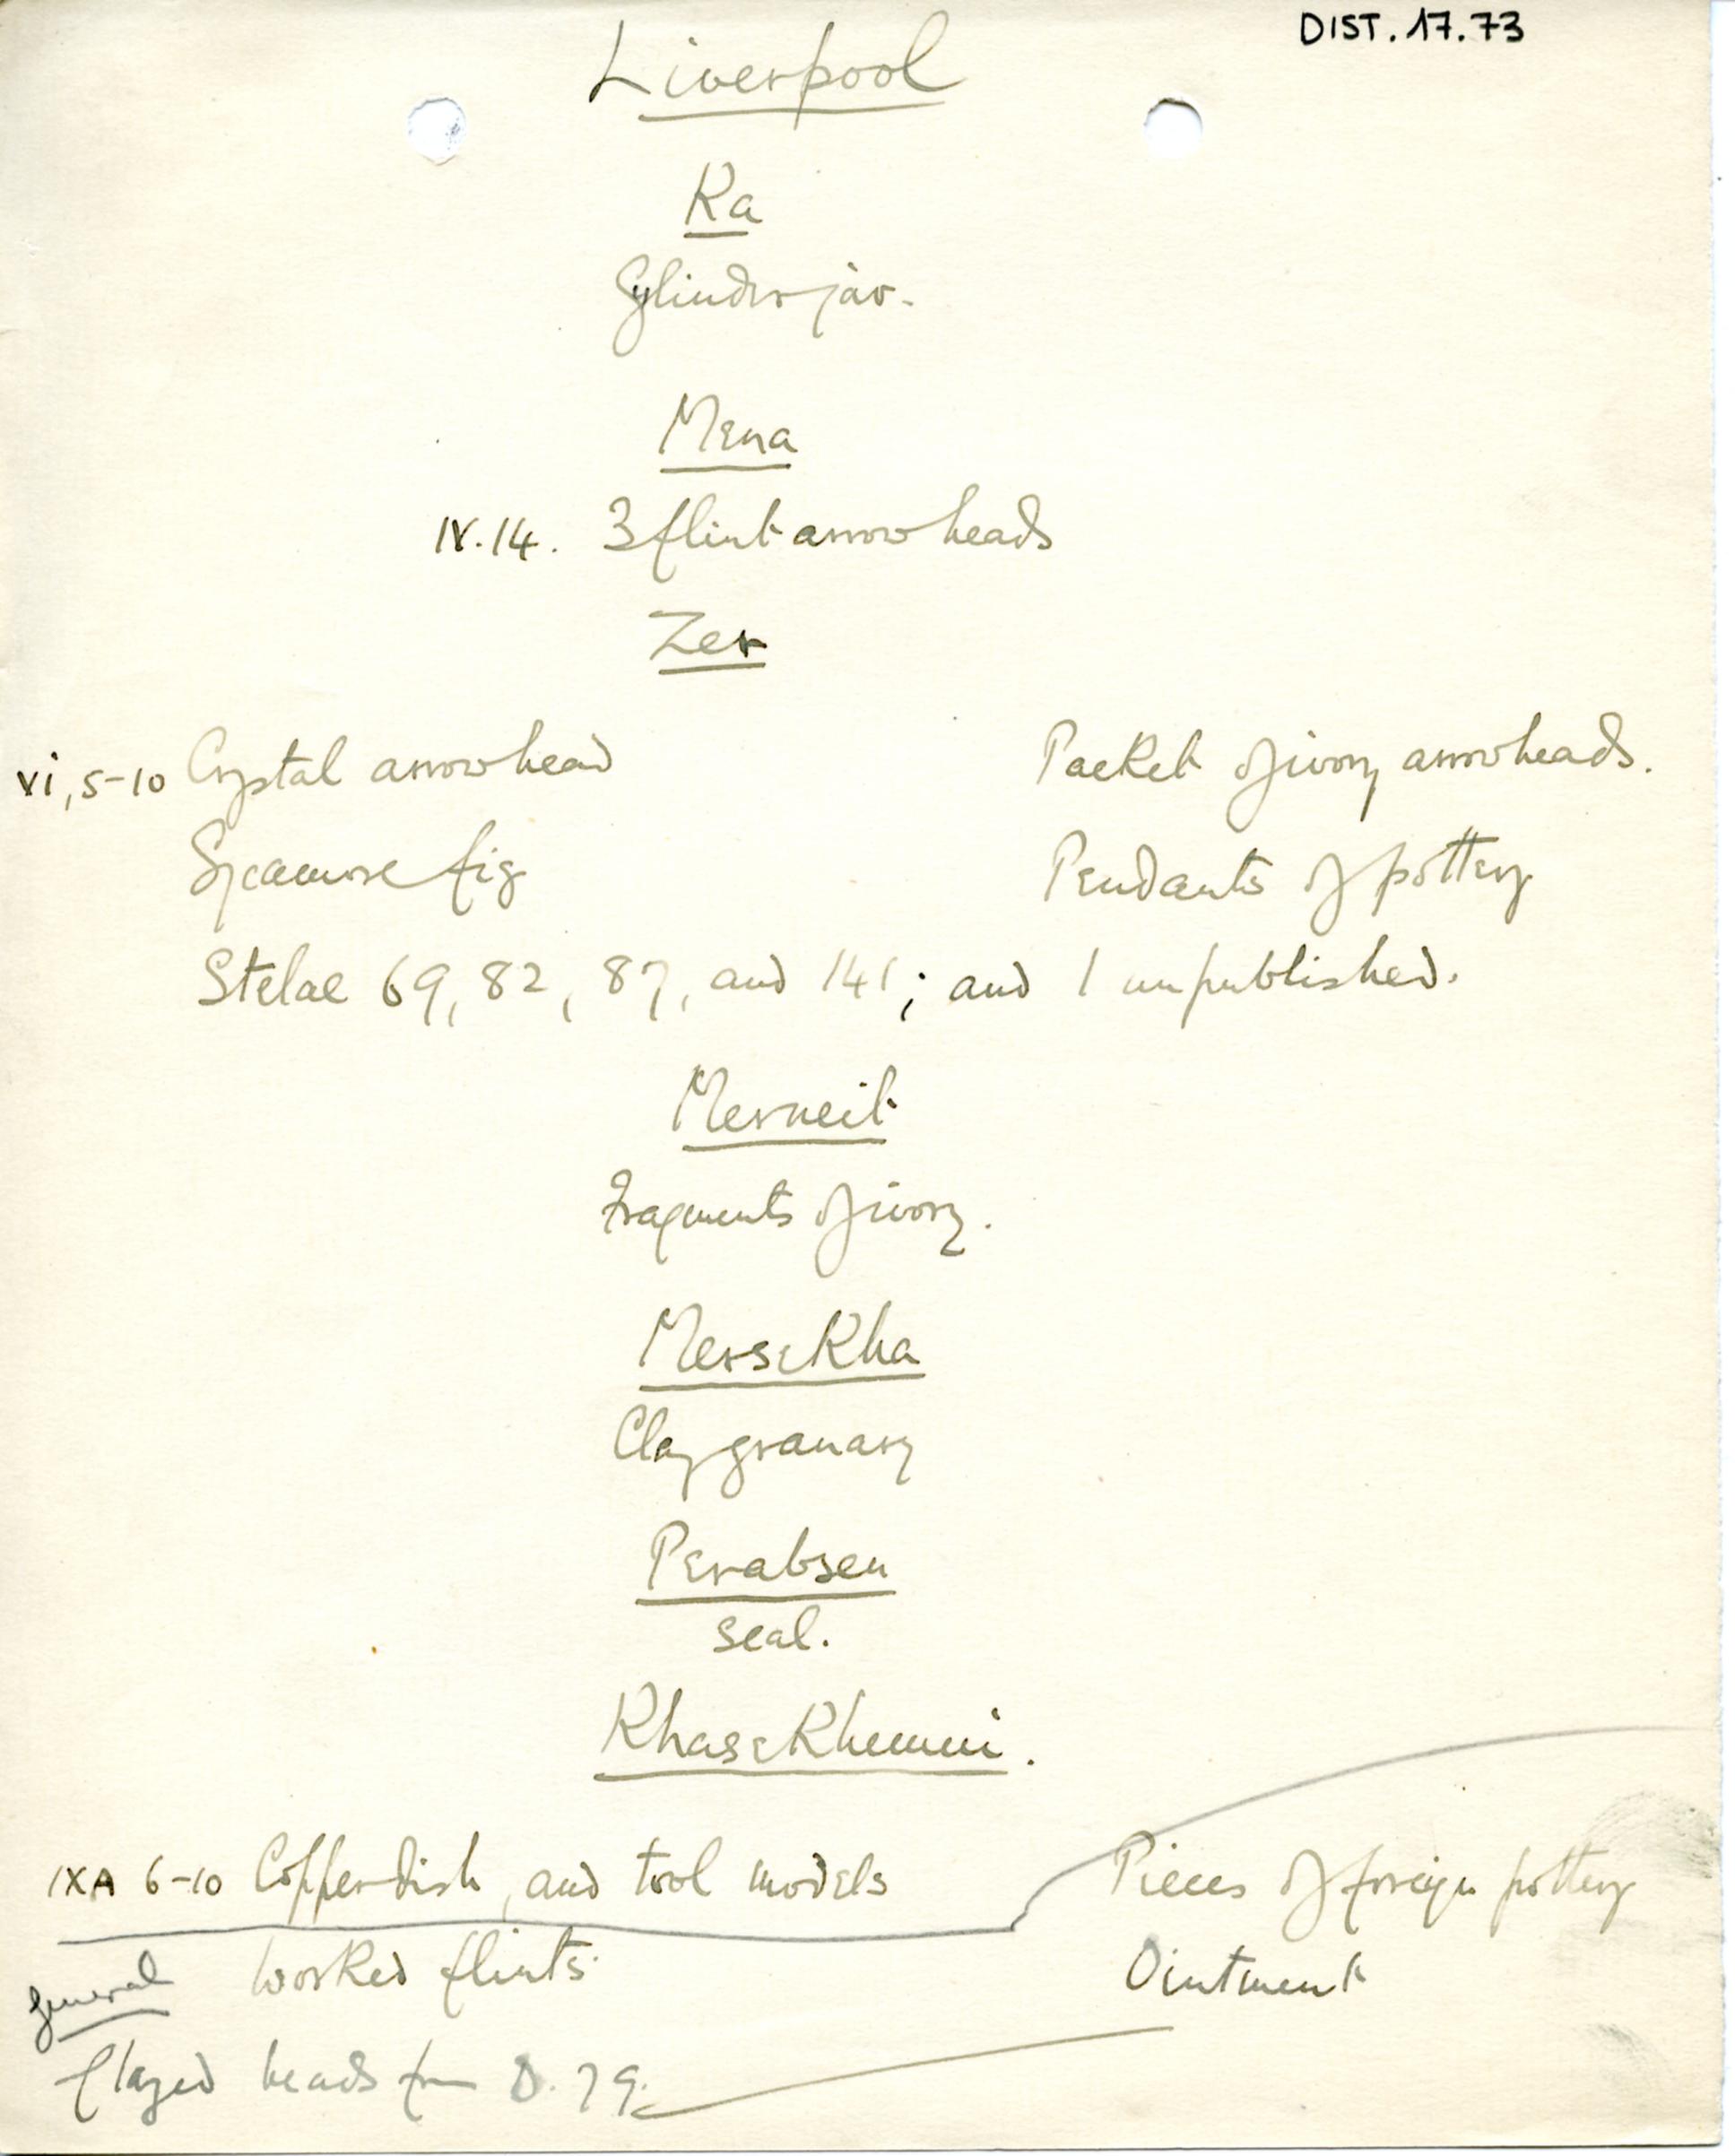 DIST. 17.73
Liverpool
Ka
Cylinder jar.
Mena
IV.14. 3 flint arrow heads
Zer
vi, 5-10 Crystal arrowhead Packet of ivory arrowheads.
Sycamore fig Pendants of pottery
Stelae 69, 82, 87, and 141; and 1 unpublished.
Merneit
Fragments of ivory.
Mersekha
Clay granary
Perabsen
seal.
Khasekhemui.
IXA 6-10 Copper dish, and tool models Pieces of foreign pottery
general Worked flints. Ointment
Glazed beads from D. 79.